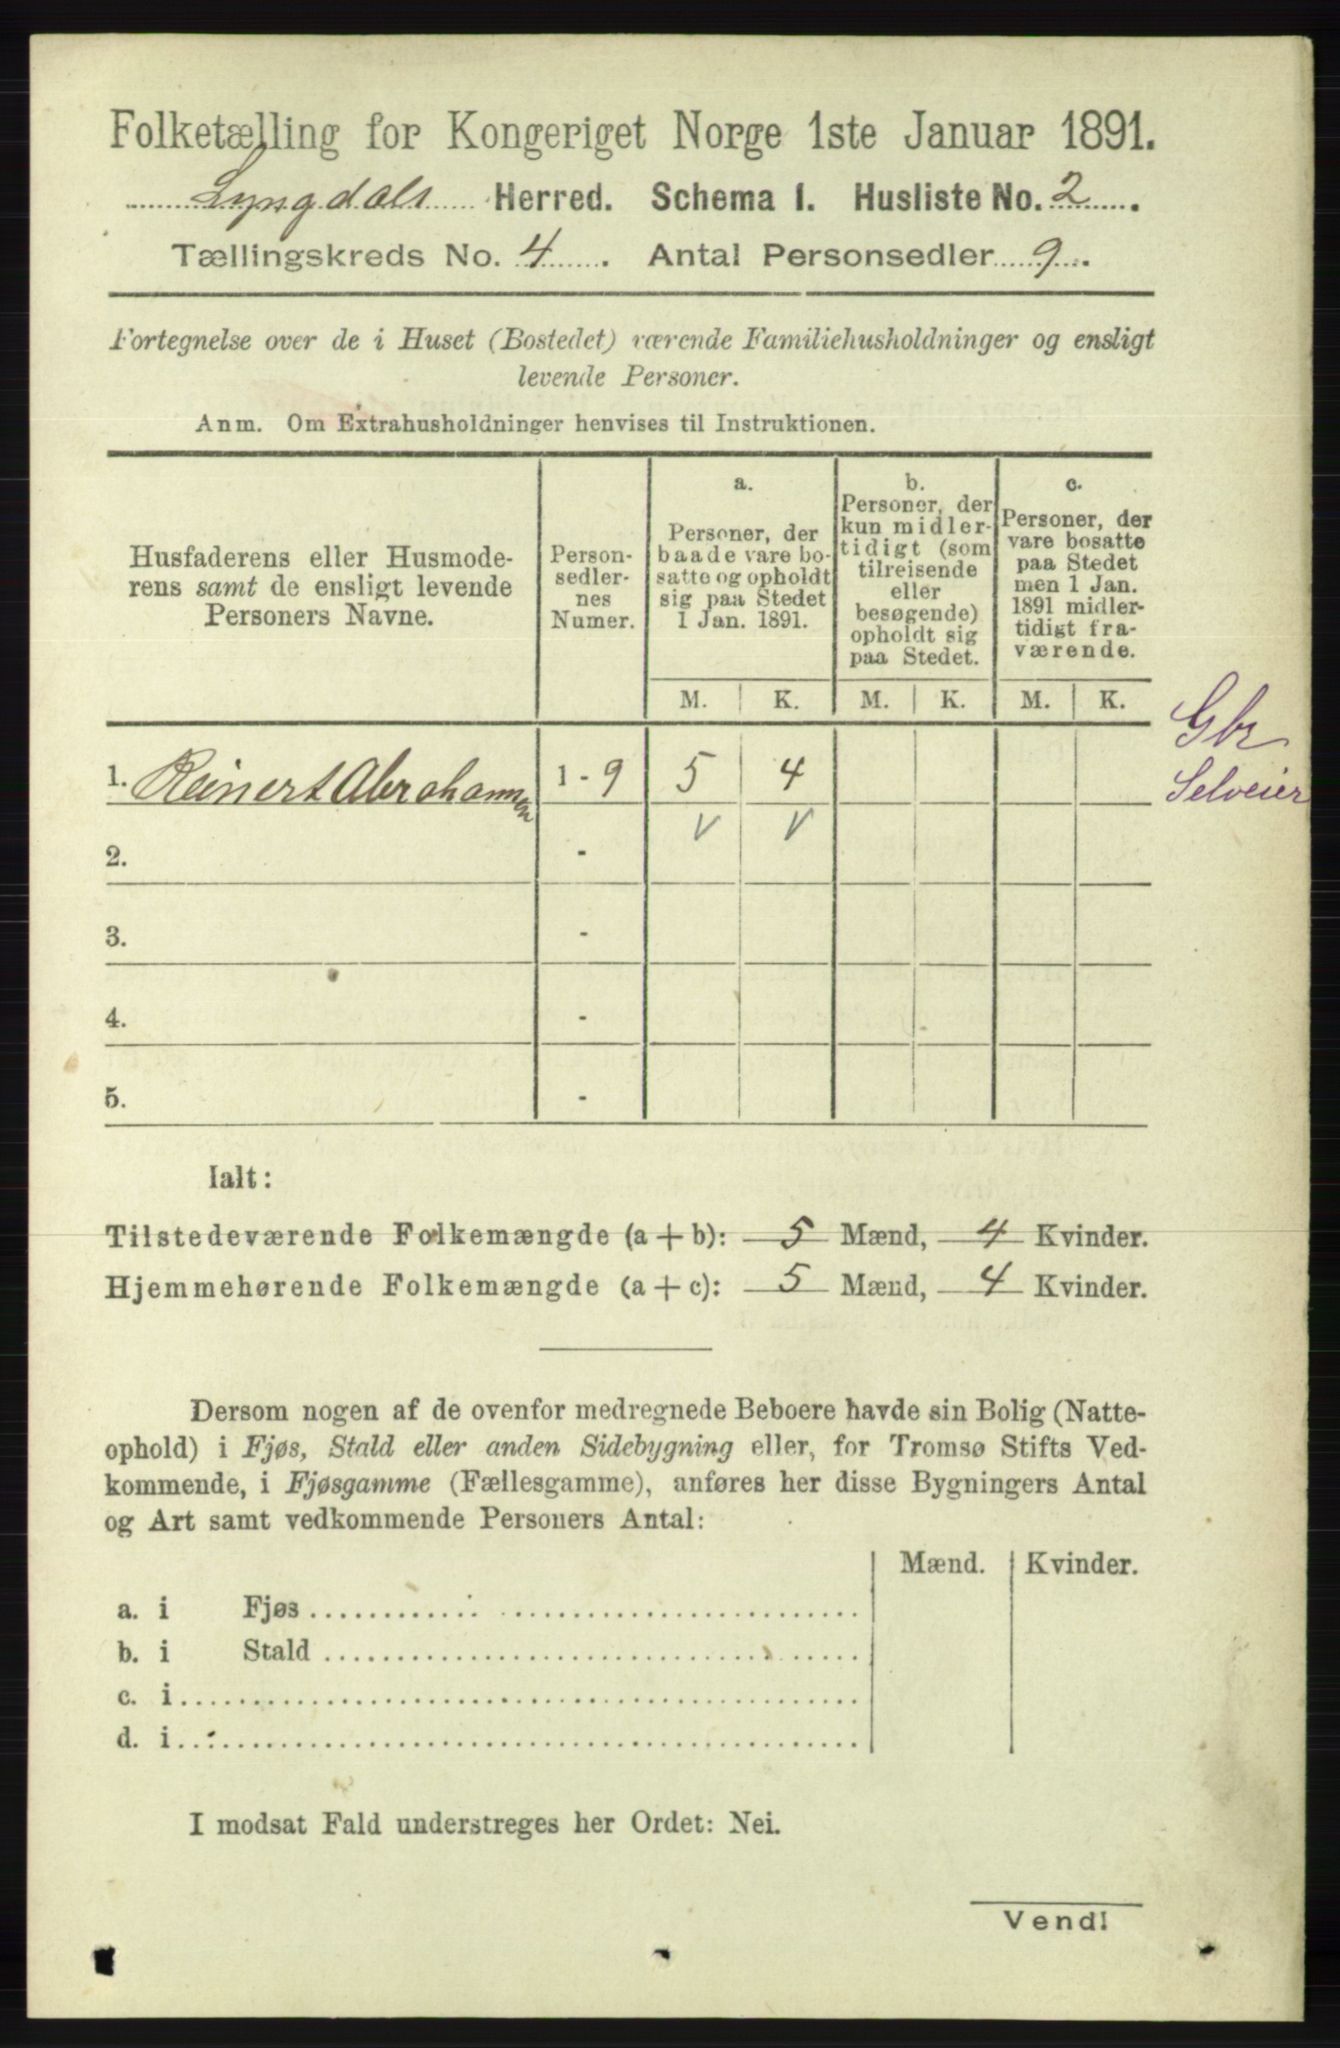 Folketælling for Kongeriget Norge 1ste Januar 1891.
Lyngdals Herred. Schema I. Husliste No. 2.
Tællingskreds No. 4. Antal Personsedler 9.
Fortegnelse over de i Huset (Bostedet) værende Familiehusholdninger og ensligt
levende Personer.
Anm. Om Extrahusholdninger henvises til Instruktionen.
Husfaderens eller Husmode-
rens samt de ensligt levende
Personers Navne.
Person-
sedler-
nes
Numer.
a.
Personer, der
baade vare bo-
satte og opholdt
sig paa Stedet
1 Jan. 1891.
b.
Personer, der
kun midler-
tidigt (som
tilreisende
eller
besøgende)
opholdt sig
paa Stedet.
c.
Personer, der
vare bosatte
paa Stedet
men 1 Jan.
1891 midler-
tidigt fra-
værende.
M. K. M. K. M. K.
Gbr
Selveier
1. Reinert Abrahamsen 1 - 9 5 4
V V
2. -
3. -
4. -
5. -
Ialt:
Tilstedeværende Folkemængde (a + b): 5 Mænd, 4 Kvinder.
Hjemmehørende Folkemængde (a + c): 5 Mænd, 4 Kvinder.
Dersom nogen af de ovenfor medregnede Beboere havde sin Bolig (Natte-
ophold) i Fjøs, Stald eller anden Sidebygning eller, for Tromsø Stifts Ved-
kommende, i Fjøsgamme (Fællesgamme), anføres her disse Bygningers Antal
og Art samt vedkommende Personers Antal:
Mænd. Kvinder.
a. i Fjøs
b. i Stald
c. i
d. i
I modsat Fald understreges her Ordet: Nei.
Vend!